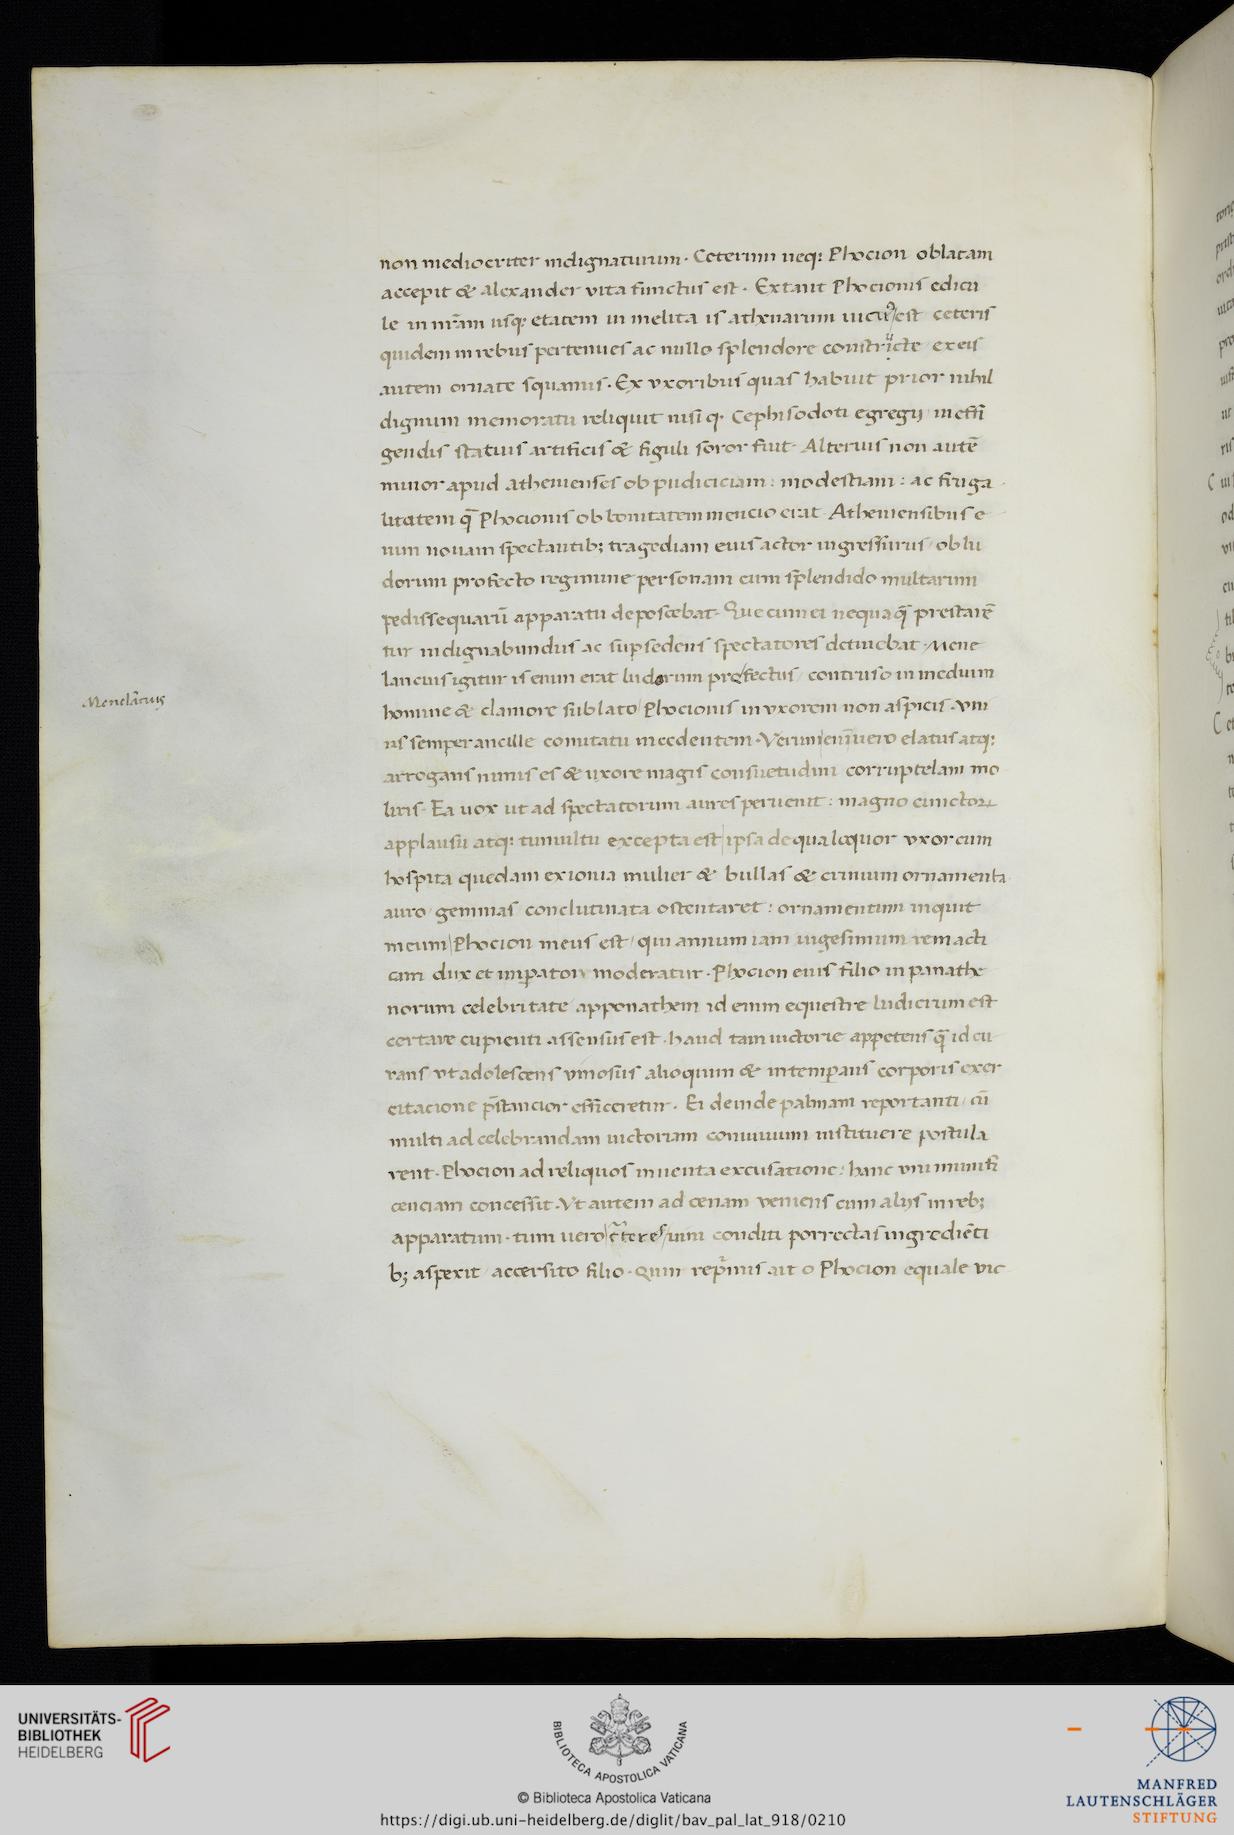 non mediocriter indignaturum. Ceterum neq: Phocion oblatam
accepit & alexander vita functus est. Extant Phocionis edicu
le in nr̃am usq: etatem in melita is athenarum uicus est ceteris
quidem in rebus pertenues ac nullo splendore constructe ex eis
autem ornate squamis. Ex vxoribus quas habuit prior nihil
dignum memoratu reliquit nisi q. Cephisodoti egregij in effi
gendis statuis artificis & figuli soror fuit. Alterius non autē
minor apud athenienses ob pudiciciam: modestiam: ac fruga
litatem q̄ Phocionis ob bonitatem mencio erat. Atheniensibus e
nim nouam spectantib; tragediam eius actor ingressurus/ob lu
dorum profecto reginune personam cum splendido multarum
pedissequarū apparatu deposcebat. Que cum ei nequaq̄ prestarē
tur indignabundus ac supsedens spectatores detinebat. Mene
Menelaus
laus cuis igitur is enim erat ludorum profectus/ contruso in medium
homine & clamore sublato/Phocionis in vxorem non aspicis. vni
us semper ancille comitatu incedentem. Verum enīuero elatus atq:
arrogans nimis es & uxore magis consuetudini corruptelam mo
liris. Ea uox ut ad spectatorum aures peruenit: magno cunctoꝝ
applausu atq: tumultu excepta est ipsa de qua loquor vxor cum
hospita quedam ex ionia mulier & bullas & crinium ornamenta
auro/gemmas conclutinata ostentaret: ornamentum inquit
meum Phocion meus est/ qui annum iam uigesimum rem acti
cam dux et imperator moderatur. Phocion eius filio in panathe
norum celebritate apponathem id enim equestre ludicrum est
certare cupienti assensus est. haud tam uictorie appetens q̄ id cu
rans vt adolescens vinosus alioquin & intemp̲ans corporis exer
citacione p̄stancior efficeretur. Ei deinde palmam reportanti/ cū
multi ad celebrandam uictoriam conuiuium instituere postula
rent. Phocion ad reliquos inuenta excusatione: hanc vni munifi
cenciam concessit. Vt autem ad cenam veniens cum alijs in reb;
apparatum. tum uero c̃teres/uini conditi porrectas ingrediēti
b; aspexit/ accersito filio. Quin reprimis ait o Phocion equale vic
UNIVERSITÄTS-
BIBLIOTHEK
HEIDELBERG
BIBLIOTECA APOSTOLICA VATICANA
© Biblioteca Apostolica Vaticana
https://digi.ub.uni-heidelberg.de/diglit/bav_pal_lat_918/0210
MANFRED
LAUTENSCHLÄGER
STIFTUNG